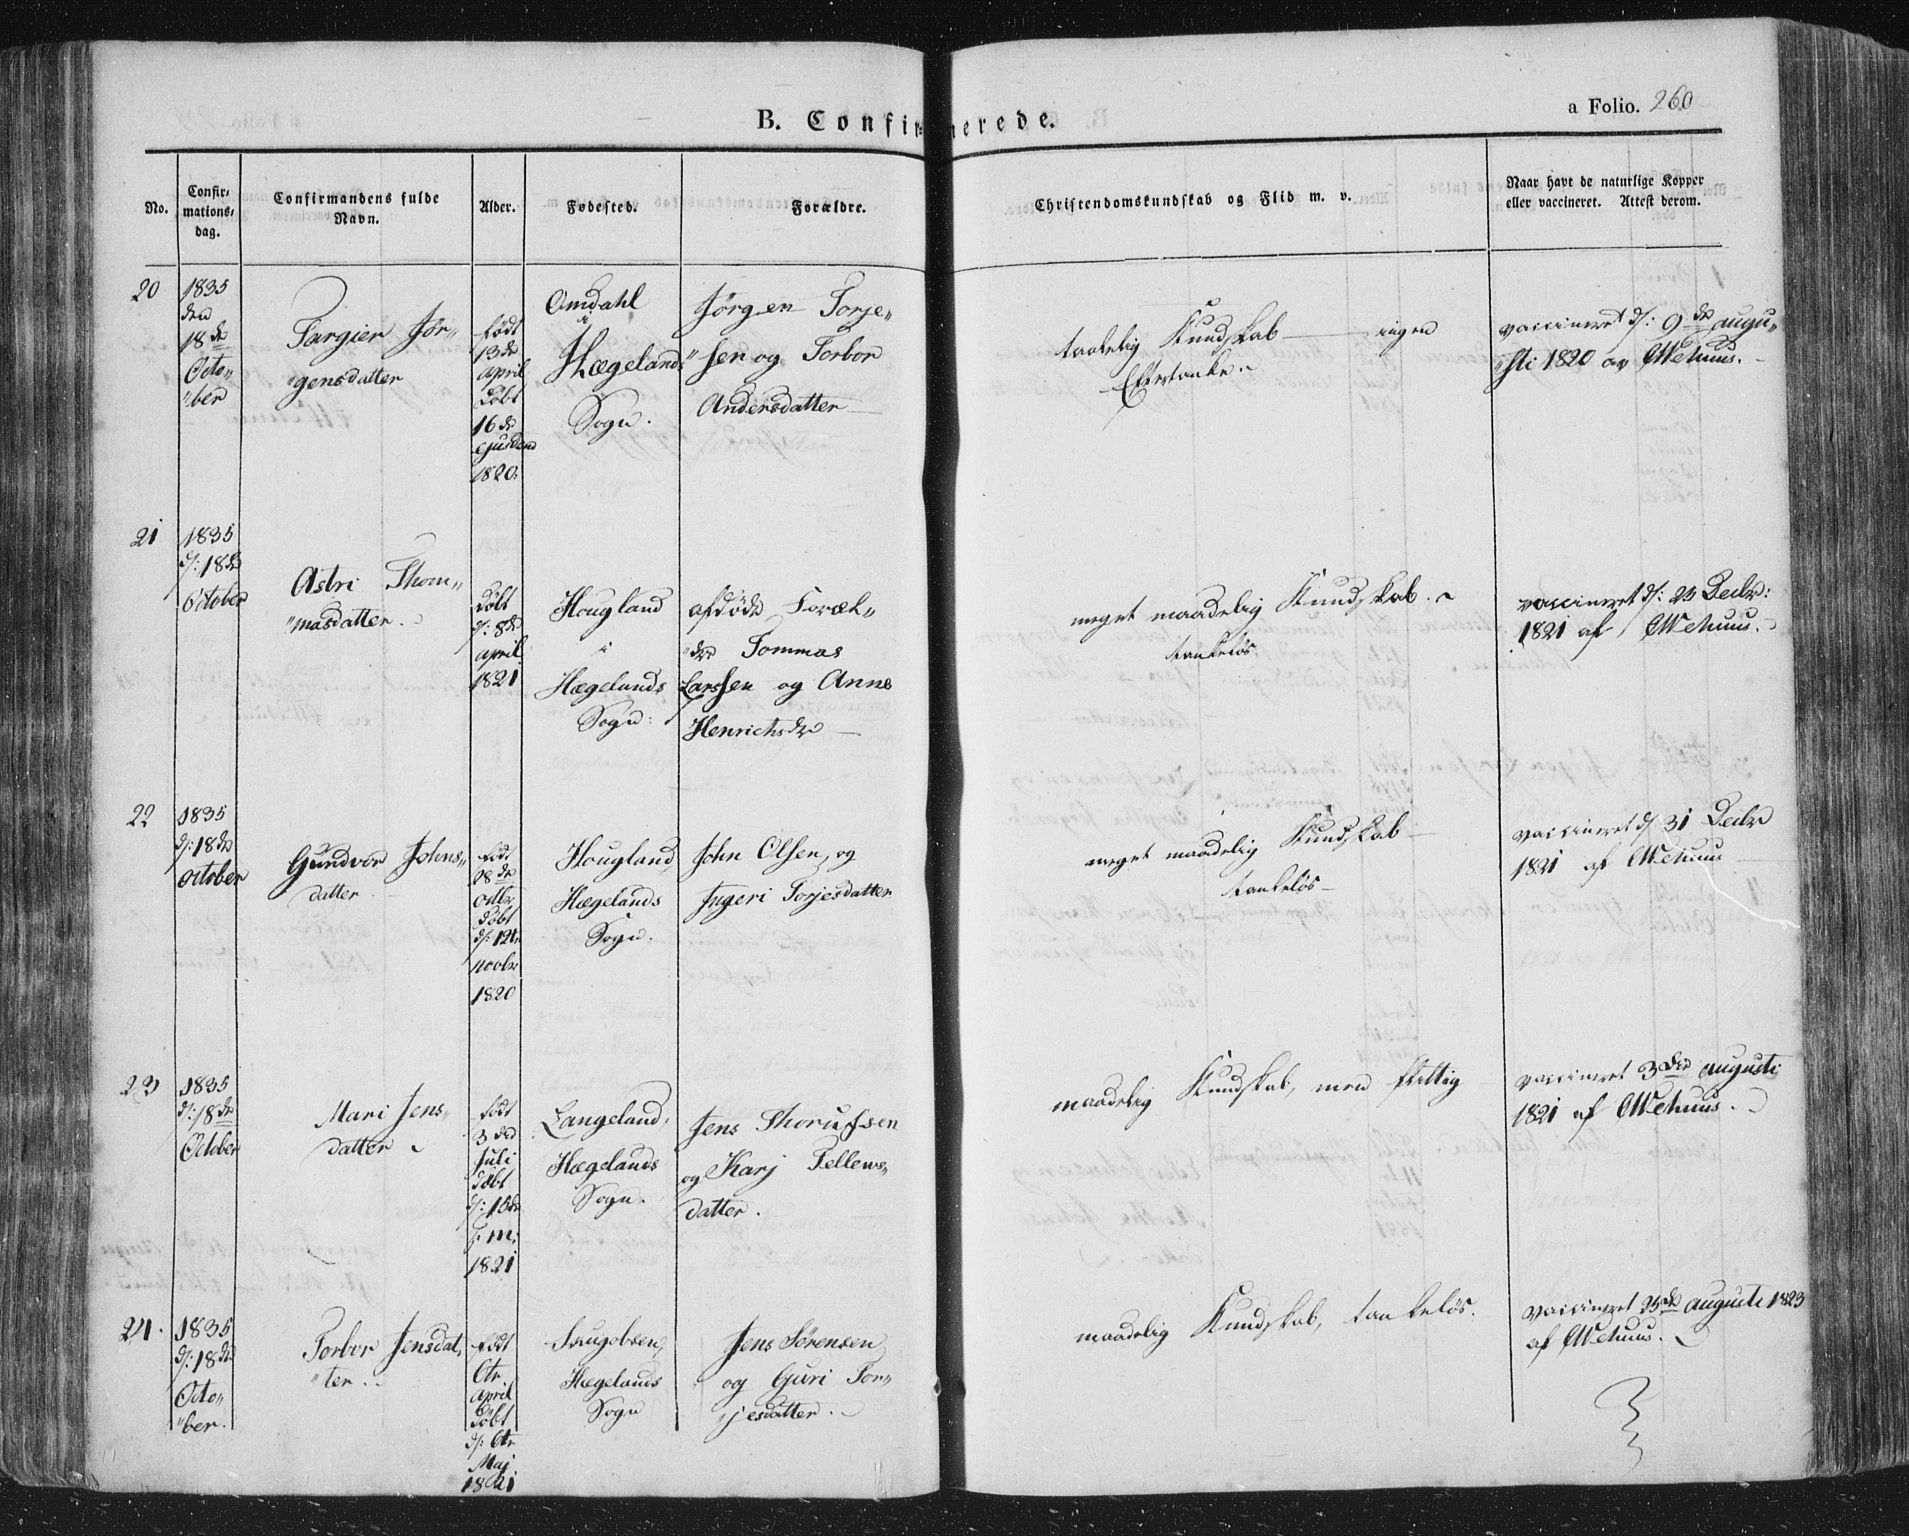 B. Confirmerede.
a Folio. 260
No.
Confir-
mations-
dag.
Confirmandens fulde
Navn.
Alder.
Fødested.
Forældre.
Christendomskundskab og Flid m. v.
Naar havt de naturlige Kopper
eller vaccineret. Attest derom.
20
1835
den
18de
Octo„
"ber
Targier Jør„
"gensdatter
født
13de
april
døbt
16de
ejusdem
1820.
Omdahl
i
Hægelands
Sogn.
Jörgen Torje„
"sen og Torbor
Andersdatter
taalelig Kundskab — ingen
Eftertanke.
vaccineret d: 9de augu„
"sti 1820 av
21
1835
d: 18de
October
Astri Thom„
"masdatter.
døbt
d: 8de
april
1821
Hougland
i
Hægelands
Sogn:
afdøde Foræl„
"dre Tommas
Larssen og Anne
Henrichsdr
meget maadelig Kundskab.
tankeløs
vaccineret d: 23 Decbr:
1821 af
22
1835
d: 18de
October
Gundvor Johns„
datter
født
28de
octbr
døbt
d: 12te
novbr
1820
Hougland,
Hægelands
Sogn.
John Olsen, og
Ingeri Torjesdatter
meget maadelig Kundskab
tankeløs
vaccineret d/ 31 Decbr
1821 af
23
1835
d: 18de
October
Mari Jens„
datter
født
3de
Juli
døbt
d: 15de
s: m:
1821
Langeland,
Hægelands
Sogn.
Jens
og Karj Tellews„
datter.
maadelig Kundskab, men flittig
vaccineret 3die augusti
1821 af
24.
1835
d: 18de
Octo„
"ber.
Torbor Jensdat„
"ter.
født
6te
april
døbt
d: 6te
Maj
1821
Hægelands
Sogn
Jens Sörensen
og Guri Tor„
"jesdatter.
maadelig Kundskab, tankeløs.
vaccineret 25de augusti 1823
af